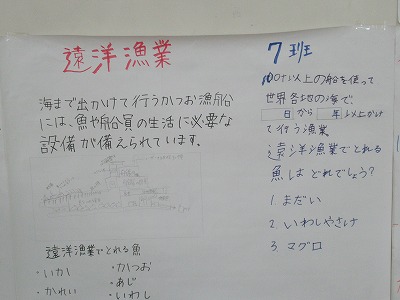 遠洋漁業
海まで出かけて行うかつお漁船
には、魚や船員の生活に必要な
設備が備えられています。
遠洋漁業でとれる魚
・いか
・かつお
・かれい
・あじ
・いわし
7班
以上の船を使って
世界各地の海で、
日から 年以上かけ
て行う漁業
遠洋漁業でとれる
魚はどれでしょう?
1. まだい
2. いわしやさけ
3. マグロ